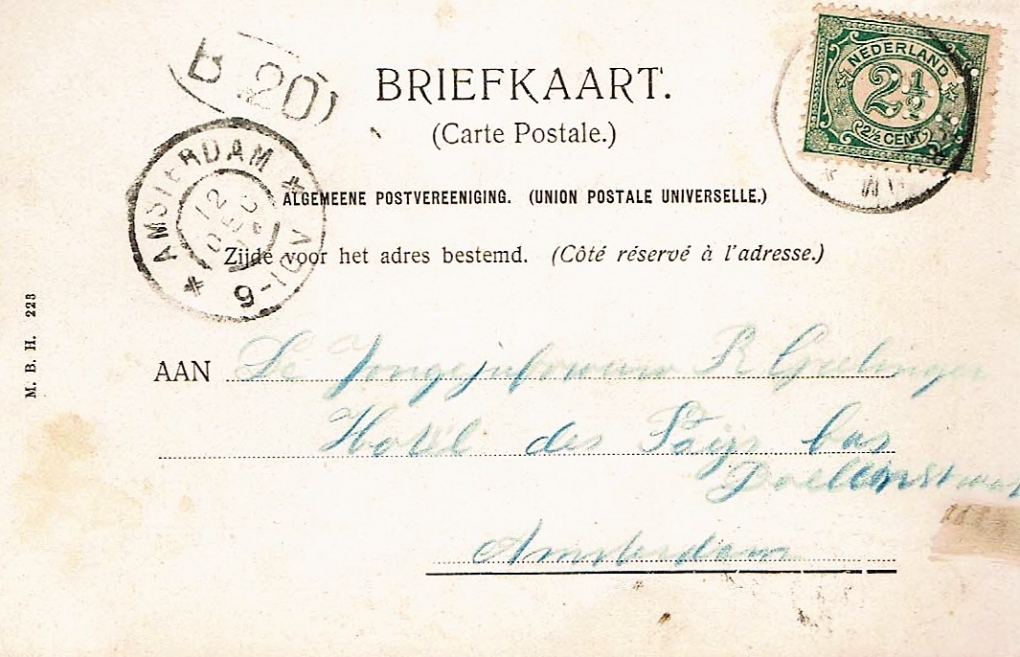 B 20
BRIEFKAART.
(Carte Postale.)
NEDERLAND
2½
(2½ CENT)
AMSTERDAM
12 DEC
9-10V
ALGEMEENE POSTVEREENIGING. (UNION POSTALE UNIVERSELLE.)
Zijde voor het adres bestemd. (Côté réservé à l'adresse.)
M. B. H. 223
AAN De Jongejufvrouw R
Hotel des Païjs bas
Doelenstraat
Amsterdam